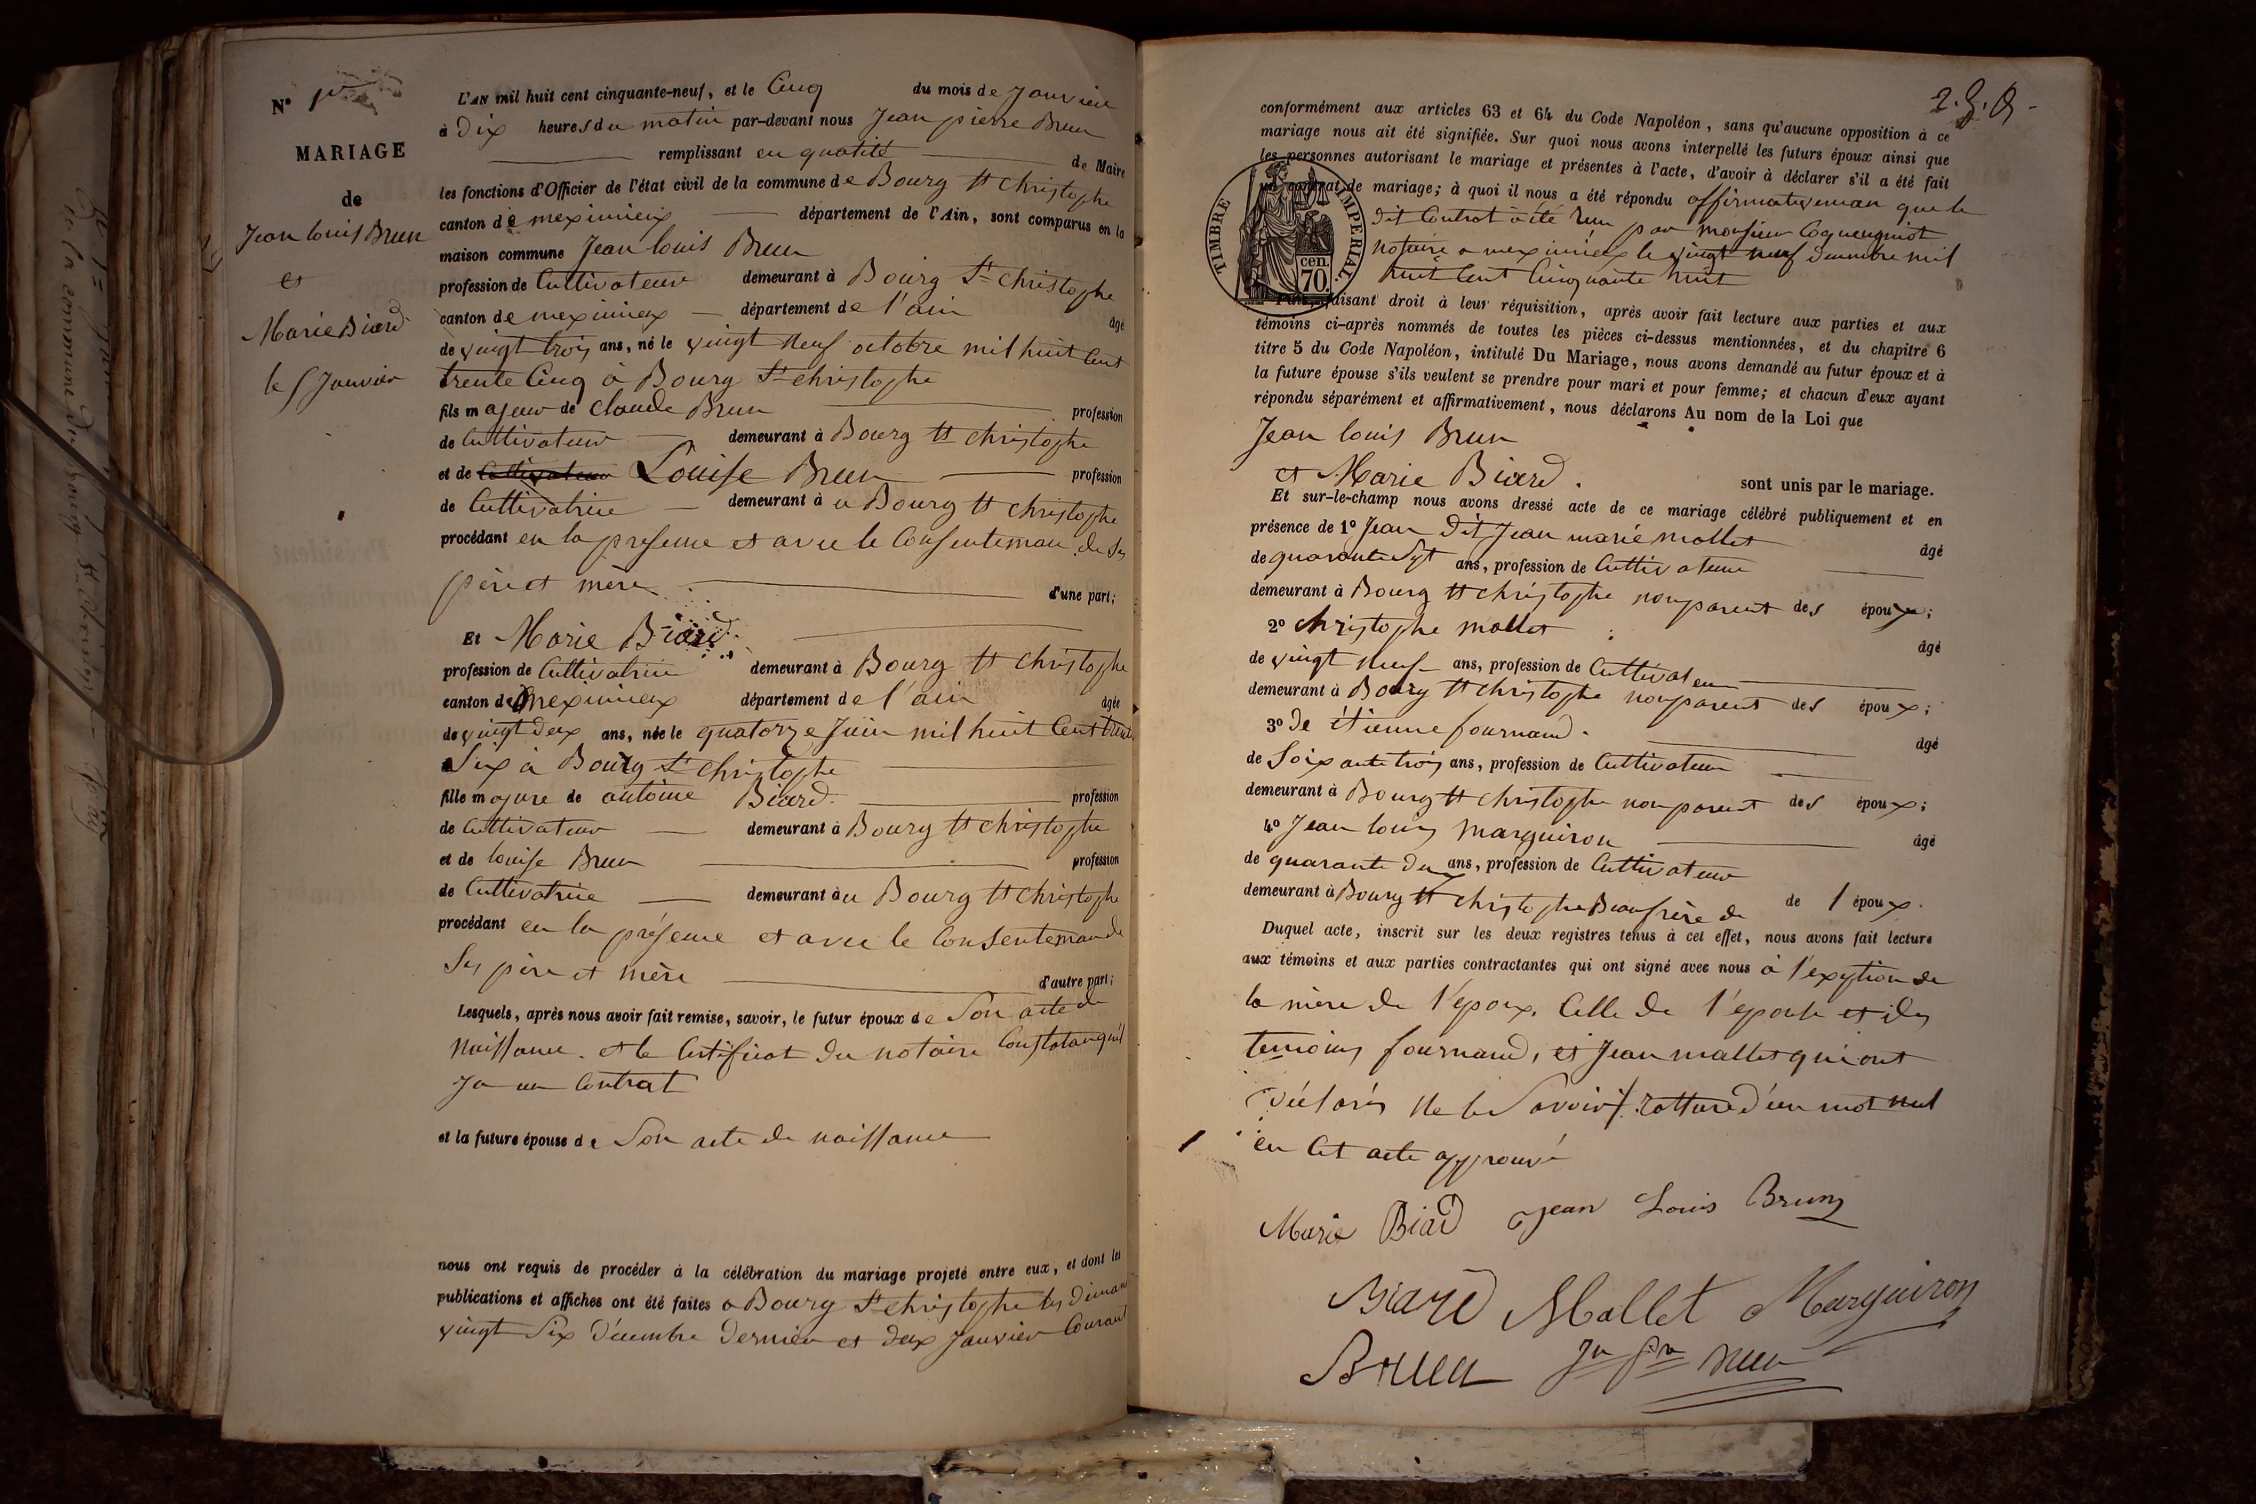 N° 1er
MARIAGE
de
Jean louis Brun
et
Marie Biard
le 5 Janvier
L'AN mil huit cent cinquante-neuf, et le Cinq du mois de Janvier
à Dix heures du matin par-devant nous Jean pierre Brun
remplissant en qualité de Maire
les fonctions d'Officier de l'état civil de la commune de Bourg St christophe
canton de meximieux département de l'Ain, sont comparus en la
maison commune Jean louis Brun
profession de Cultivateur demeurant à Bourg St christophe
canton de meximieux département de l'ain âgé
de vingt trois ans, né le vingt neuf octobre mil huit Cent
trente Cinq à Bourg St christophe
fils majeur de claude Brun profession
de Cultivateur demeurant à Bourg St christophe
et de Cultivateur Louise Brun profession
de Cultivatrice demeurant à u Bourg St christophe
procédant en la presence et avec le Consenteman de Ses
père et mère d'une part;
Et Marie Biard
profession de Cultivatrice demeurant à Bourg St christophe
canton de meximieux département de l'ain âgée
de vingt deux ans, née le quatorze Juin mil huit Cent trente
Six à Bourg St christophe
fille majure de antoine Biard profession
de Cultivateur demeurant à Bourg St christophe
et de louise Brun profession
de Cultivatrice demeurant à u Bourg St christophe
procédant en la présence et avec le Consenteman de
Ses père et mère d'autre part;
Lesquels, après nous avoir fait remise, savoir, le futur époux de Son acte de
Naissance. et le Certificat du notaire Constatan qu'il
y a un Contrat
et la future épouse de Son acte de naissance
nous ont requis de procéder à la célébration du mariage projeté entre eux, et dont les
publications et affiches ont été faites a Bourg St christophe les diman
vingt Six Décembre dernier et deux Janvier Courant
conformément aux articles 63 et 64 du Code Napoléon, sans qu'aucune opposition à ce
mariage nous ait été signifiée. Sur quoi nous avons interpellé les futurs époux ainsi que
les personnes autorisant le mariage et présentes à l'acte, d'avoir à déclarer s'il a été fait
un contrat de mariage; à quoi il nous a été répondu affirmativeman que le
TIMBRE IMPERIAL
cen. 70.
dit Contrat à été reçu par monsieur Coquenquiot
notaire a meximieux le vingt neuf décembre mil
huit Cent Cinquante huit
Puis, faisant droit à leur réquisition, après avoir fait lecture aux parties et aux
témoins ci-après nommés de toutes les pièces ci-dessus mentionnées, et du chapitre 6
titre 5 du Code Napoléon, intitulé Du Mariage, nous avons demandé au futur époux et à
la future épouse s'ils veulent se prendre pour mari et pour femme; et chacun d'eux ayant
répondu séparément et affirmativement, nous déclarons Au nom de la Loi que
Jean louis Brun
et Marie Biard. sont unis par le mariage.
Et sur-le-champ nous avons dressé acte de ce mariage célébré publiquement et en
présence de 1° Jean Dit Jean marie mollet âgé
de quarante Sept ans, profession de Cultivateur
demeurant à Bourg St christophe non parent des époux;
2° christophe mollet âgé
de vingt neuf ans, profession de Cultivateur
demeurant à Bourg St christophe non parent des époux;
3° de étienne fournand. âgé
de Soixante trois ans, profession de Cultivateur
demeurant à Bourg St christophe non parent des époux;
4° Jean louis Marguiron âgé
de quarante deux ans, profession de Cultivateur
demeurant à Bourg St christophe Beaufrère de de l époux.
Duquel acte, inscrit sur les deux registres tenus à cet effet, nous avons fait lecture
aux témoins et aux parties contractantes qui ont signé avec nous à l'exeption de
la mère de l'époux, Celle de l'épouse et des
temoins fournand, et Jean mallet qui ont
déclarés ne le Savoir / ratture d'un mot nul
en Cet acte approuvé
Marie Biard Jean Louis Brun
Biard Mallet Marguiron
Brun Jn Pre Brun